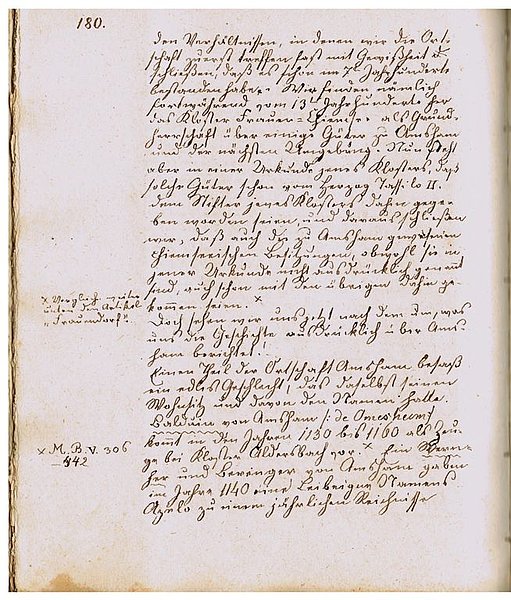 180.
den Verhältnissen, in denen wir die Ort-
schaft zuerst treffen fast mit Gewißheit
schließen, daß es schon im 7t Jahrhunderte
bestanden habe. Wir finden nämlich
fortwährend vom 13t Jahrhunderte her
das Kloster Frauen-Chiemsee als Grund-
herrschaft über einige Güter zu Amsham
und der nächsten Umgebung. Nun steht
aber in einer Urkunde jenes Klosters, daß
solche Güter schon vom Herzog Tassilo II.
dem Stifter jenes Klosters dahin gege-
ben worden seien, und daraus schließen
wir, daß auch die zu Amsham
chiemseeischen Besitzungen, obwohl sie in
jener Urkunde nicht ausdrücklich genannt
sind, auch schon mit den übrigen dahin ge-
kommen seien. x
x Vergleiche weiter
unten den Artikel
"Frauendorf".
Doch sehen wir uns jetzt nach dem um, was
uns die Geschichte ausdrücklich über Ams-
ham berichtet.
Einen Theil der Ortschaft Amsham besaß
ein edles Geschlecht, das daselbst seinen
Wohnsitz und davon den Namen hatte.
Balduin von Amsham /: de Omesheim/
kömt in den Jahren 1130 bis 1160 als Zeu-
ge bei Kloster Aldersbach vor. x Ein Wern-
x M. B. V. 306
442
her und Berenger von Amsham gaben
im Jahre 1140 eine Leibeigne Namens
Azela zu einem jährlichen Reichnisse